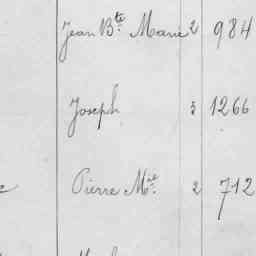 Jean Bte Marie 2 984
Joseph 5 1266
Pierre Mel 2 712